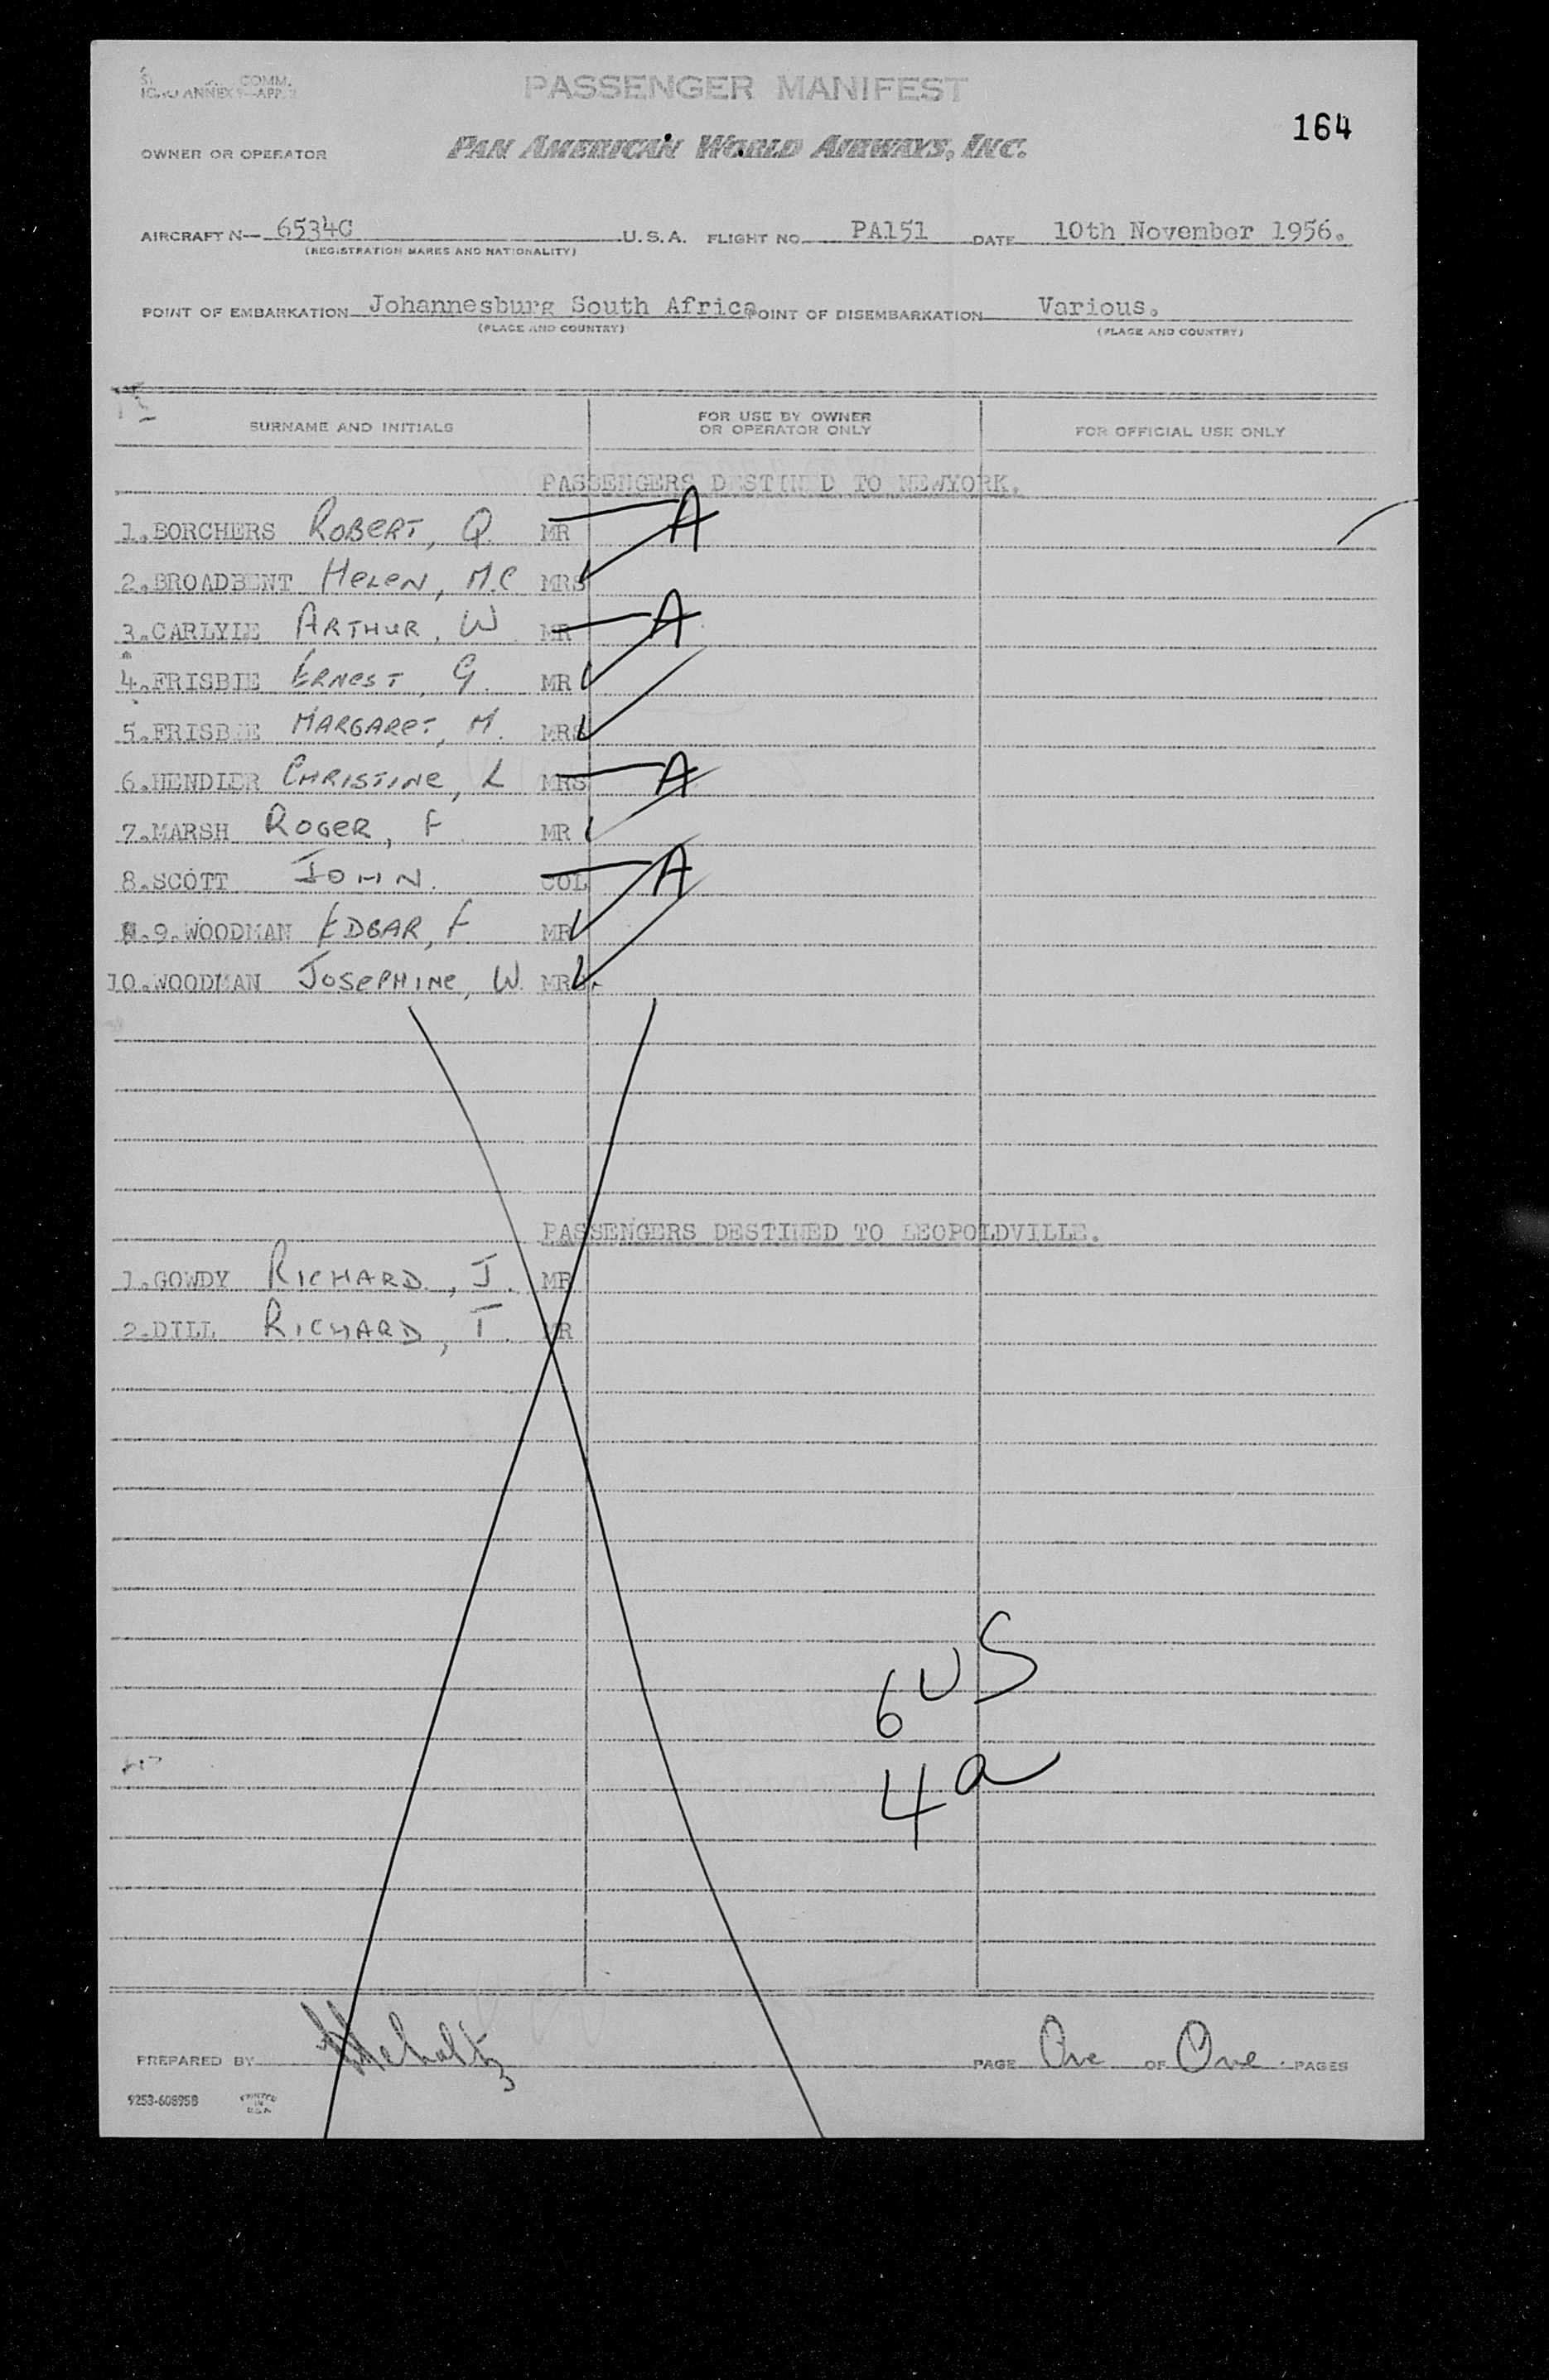 COMM.
ICAO ANNEX 9—APP. 3
PASSENGER MANIFEST
164
OWNER OR OPERATOR PAN AMERICAN WORLD AIRWAYS, INC.
AIRCRAFT N— 6534C U.S.A. FLIGHT NO. PA151 DATE 10th November 1956.
(REGISTRATION MARKS AND NATIONALITY)
POINT OF EMBARKATION Johannesburg South Africa POINT OF DISEMBARKATION Various.
(PLACE AND COUNTRY) (PLACE AND COUNTRY)
SURNAME AND INITIALS FOR USE BY OWNER OR OPERATOR ONLY FOR OFFICIAL USE ONLY
PASSENGERS DESTINED TO NEWYORK.
1.BORCHERS ROBERT, Q. MR A
2.BROADBENT HELEN, M.C MRS
3.CARLYLE ARTHUR, W. MR A
4.FRISBIE ERNEST, G. MR
5.FRISBIE MARGARET, M. MRS
6.HENDLER CHRISTINE, L MRS A
7.MARSH ROGER, F. MR
8.SCOTT JOHN. COL A
9.WOODMAN EDGAR, F MR
10.WOODMAN JOSEPHINE, W. MRS.
PASSENGERS DESTINED TO LEOPOLDVILLE.
1.GOWDY RICHARD, J. MR
2.DILL RICHARD, T. MR
6 US
4 a
PREPARED BY PAGE One OF One. PAGES
9253-608958 PRINTED IN U.S.A.